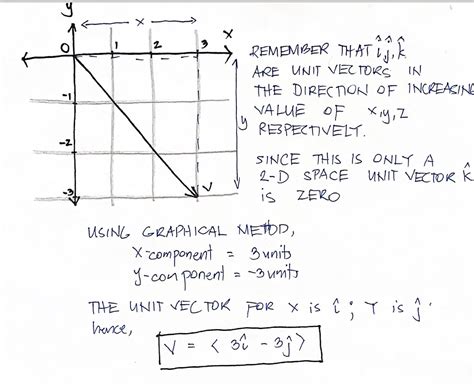 y
x
x
0
1
2
3
-1
-2
-3
y
V
REMEMBER THAT î, ĵ, k̂
ARE UNIT VECTORS IN
THE DIRECTION OF INCREASING
VALUE OF x,y,z
RESPECTIVELY.
SINCE THIS IS ONLY A
2-D SPACE UNIT VECTOR k̂
is ZERO
USING GRAPHICAL METHOD,
X-component = 3 units
y-component = -3 units
THE UNIT VECTOR FOR X is î ; Y is ĵ.
hence,
V = < 3î - 3ĵ >